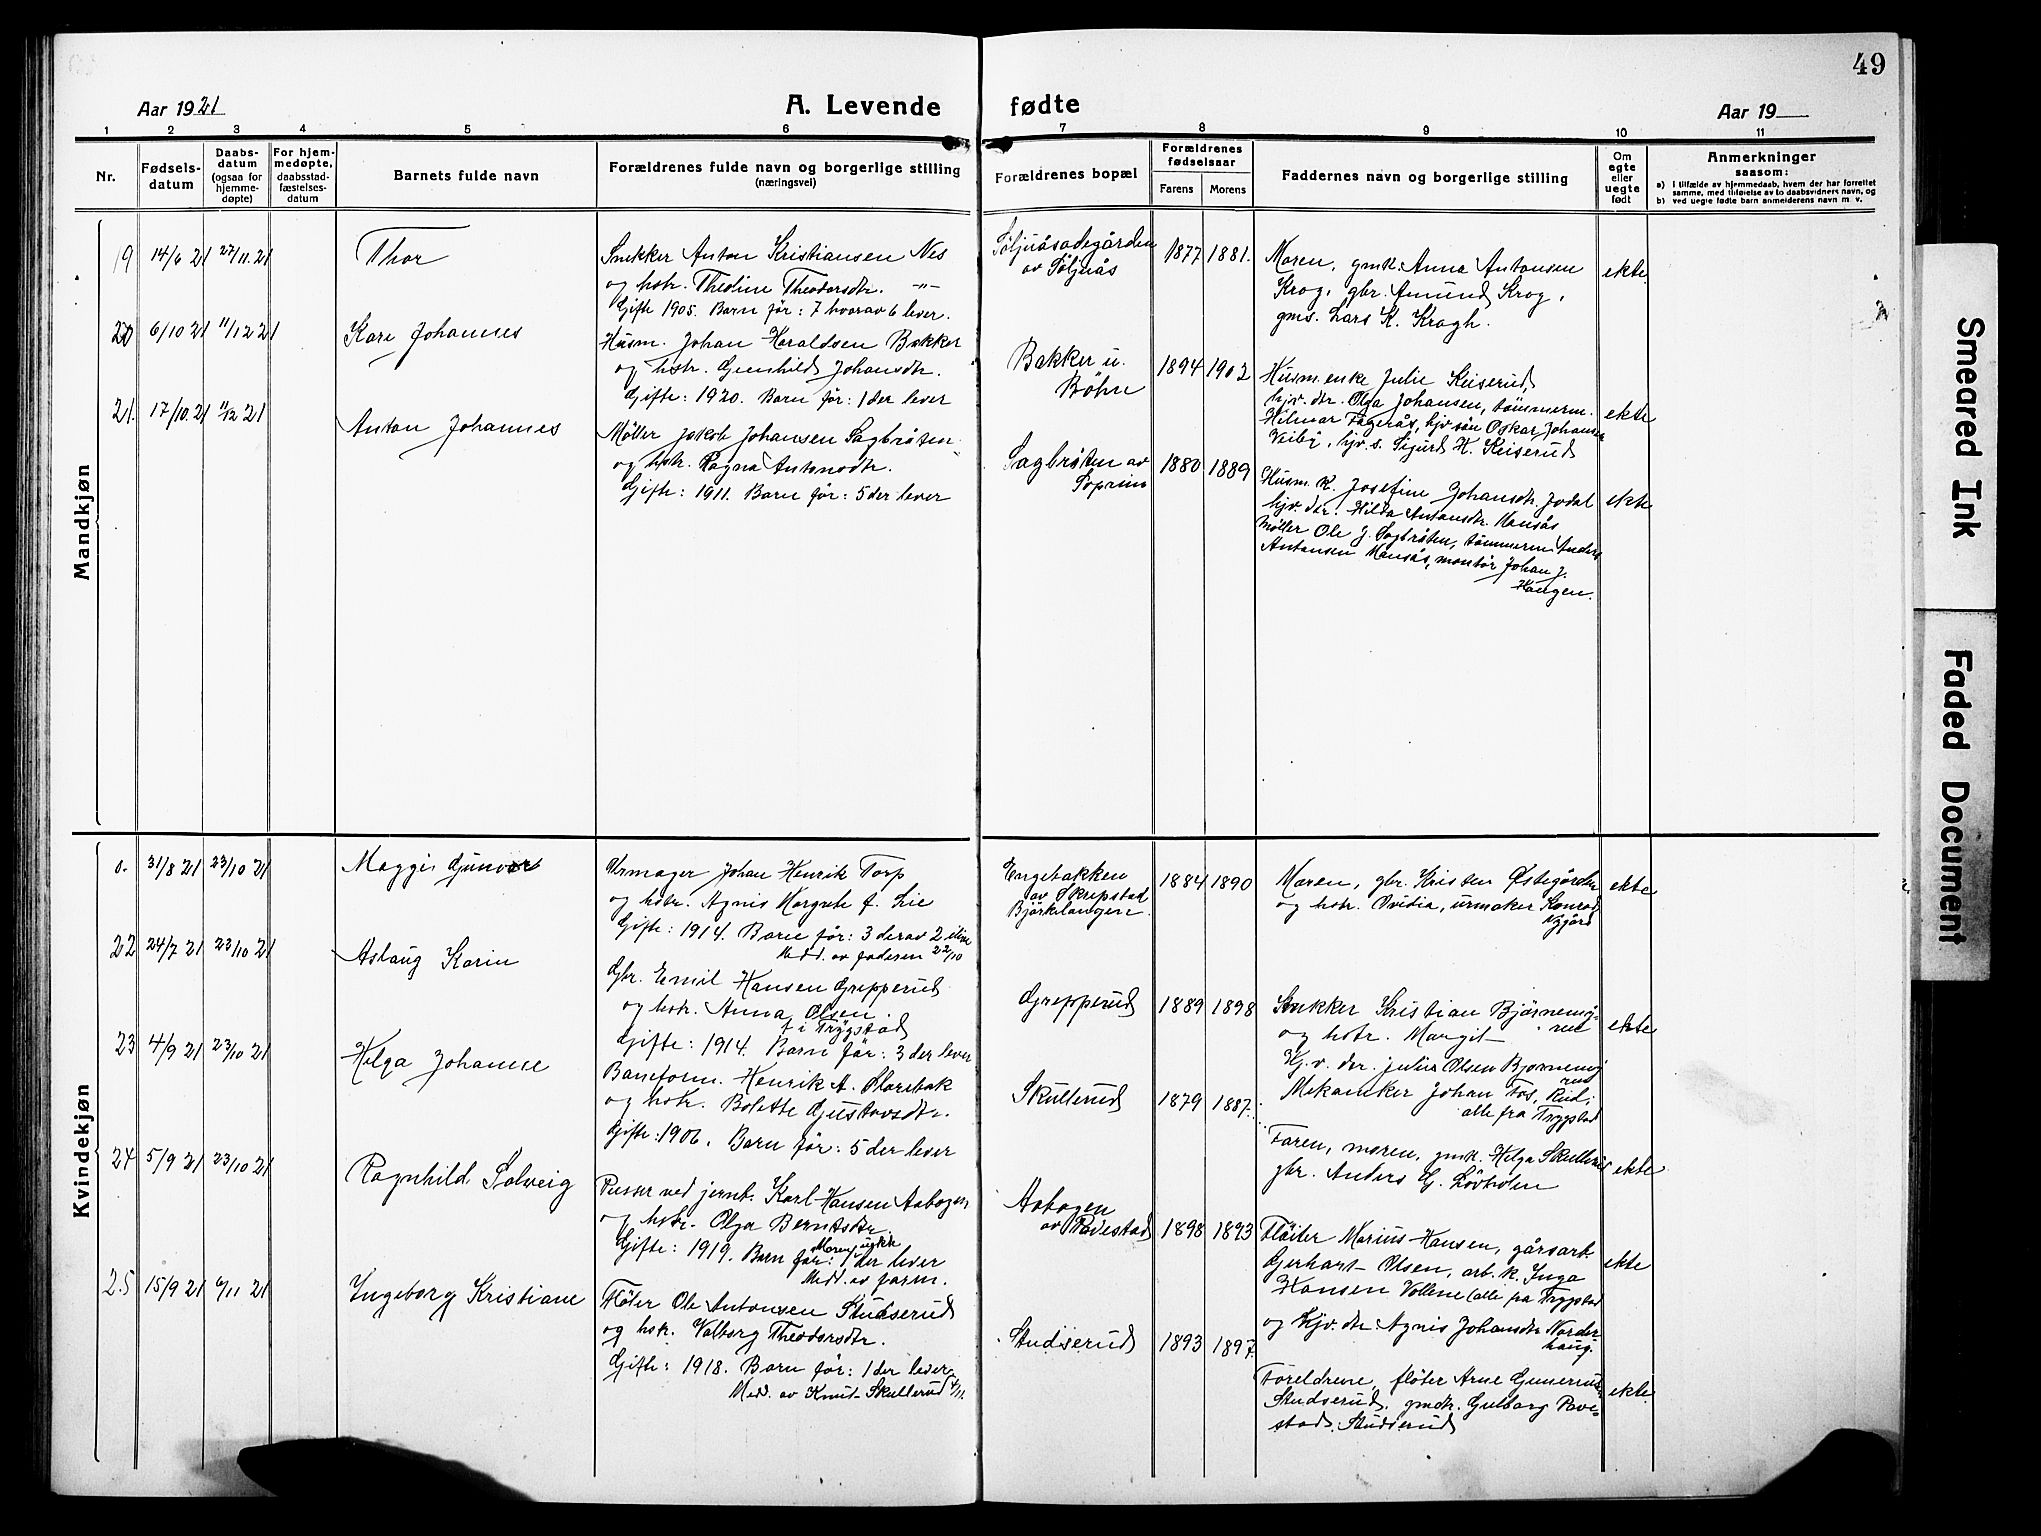 49
Aar 1921
A. Levende fødte
Aar 19
1 2 3 4 5 6 7 8 9 10 11
Nr.
Fødsels-
datum
Daabs-
datum
(ogsaa for
hjemme-
døpte)
For hjem-
medøpte,
daabsstad-
fæstelses-
datum
Barnets fulde navn
Forældrenes fulde navn og borgerlige stilling
(næringsvei)
Forældrenes bopæl
Forældrenes
fødselsaar
Farens Morens
Faddernes navn og borgerlige stilling
Om
egte
eller
uegte
født
Anmerkninger
saasom:
a) i tilfælde av hjemmedaab, hvem der har forrettet
samme, med tilføielse av to daabsvidners navn, og
b) ved uegte fødte barn anmelderens navn m. v.
Mandkjøn
19 14/6 21 27/11. 21 Thor
Snekker Anton Kristiansen Nes
og hstr. Thedine Theodorsdtr. -"-
Gifte 1905. Barn før: 7 hvorav 6 lever.
av Søljuås
1877 1881.
Moren, gmk. Anna Antonsen
Krog, gbr. Amund Krog,
gms. Lars K. Krogh.
ekte
20 6/10 21 11/12 21 Kåre Johannes
Husm. Johan Haraldsen Bakker
og hstr. Gunhild Johansdtr.
Gifte: 1920. Barn før: 1 der lever
Bakker u.
Böhn
1894 1902
Husm.enke Julie Keiserud,
hjv. dtr. Olga Johansen, tømmerm.
Hilmar Fagerås, hjv. søn Oskar Johansen
Veiby, hjv. s. Sigurd H. Keiserud
ekte
21. 17/10. 21 11/12 21 Anton Johannes
Møller Jakob Johansen Sagbråten
og hstr. Ragna Antonsdtr.
Gifte: 1911. Barn før: 5 der lever
Sagbråten av
Soprim
1880 1889
Husm. k. Josefine Johansdtr. Jødal
hjv. dtr. Hilda Antonsdtr. Hansås
Møller Ole J. Sagbråten, tømmerm Anders
Antonsen Hansås, montør Johan J.
Haugen.
ekte
Kvindekjøn
31/8 21 23/10 21 Maggie Gunvor
Urmager Johan Henrik Torp
og hstr. Agnes Margrete f. Lie
Gifte: 1914. Barn før: 3 derav 2 ilive
Medd. av faderen 22/10
Engebakken
av Skrepstad
Bjørkelangen.
1884 1890
Moren, gbr. Kristen Østegården
og hstr. Ovidia, urmaker Konrad
Nygård
ekte
22 24/7 21 23/10 21 Aslaug Karin
Gbr. Emil Hansen Grepperud
og hstr. Anna Olsen.
f. i Trygstad
Gifte: 1914. Barn før: 3 der lever
Grepperud
1889 1898
Snekker Kristian Bjørnemy-
ren
og hstr. Margit
Hj. v. dtr. Julia Olsen Bjørnemy
ren
Mekaniker Johan Fos, Rud,
alle fra Trygstad
ekte
23 4/9 21 23/10 21 Helga Johanne
Baneform. Henrik A. Klorebak
og hstr. Bolette Gustavsdtr.
Gifte: 1906. Barn før: 5 der lever
Skullerud
1879 1887.
Faren, moren, gmk. Helga Skullerud
gbr. Anders G. Lövholen
ekte
24 5/9 21 23/10 21 Ragnhild Solveig
Pusser ved jernb. Karl Hansen Aabogen
og hstr. Olga Berntsdtr.
Gifte: 1919. Barn før: 1 der lever
Medd. av faren.
Aabogen
av Ravestad
1898 1893
Fløiter Marius Hansen, gårsarb.
Gerhart Olsen, arb. k. Inga
Hansen Vollene (alle fra Trygstad
og hjv. dtr. Agnes Johansdtr. Norder-
haug.
ekte
25 15/9 21 6/11 21 Ingeborg Kristiane
Fløter Ole Antonsen Studserud
og hstr. Valborg Theodorsdtr.
Gifte: 1918. Barn før: 1 der lever
Medd. av Knut Skullerud 4/11.
Studserud
1893 1897.
Foreldrene, fløter Arne Gunerius
Studserud, gmdtr. Gulborg Rave-
stad, Studserud
ekte
Smeared Ink
Faded Document